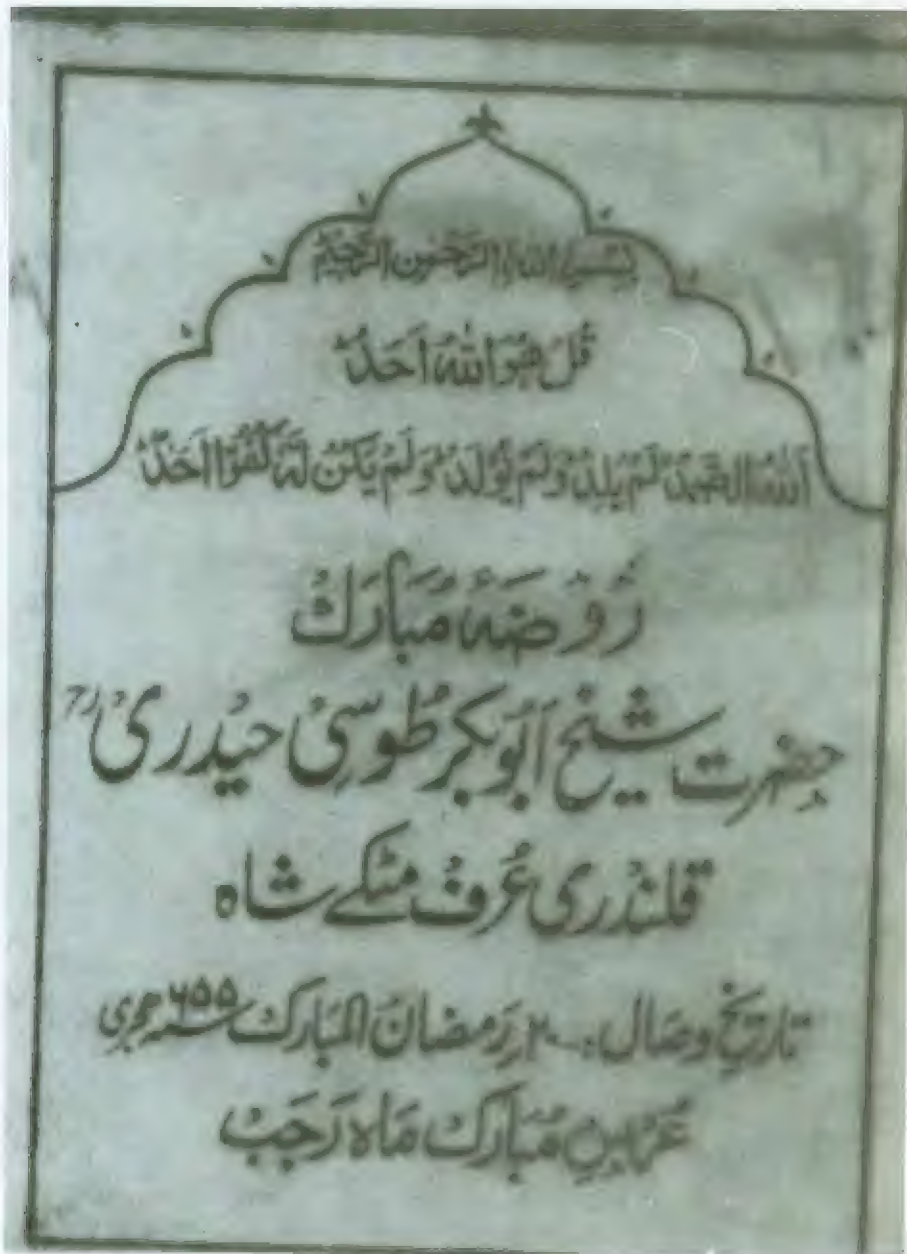 بِسْمِ اللّٰهِ الرَّحْمٰنِ الرَّحِيْمِ
قُلْ هُوَ اللّٰهُ اَحَدٌ
اَللّٰهُ الصَّمَدُ لَمْ يَلِدْ وَلَمْ يُوْلَدْ وَلَمْ يَكُنْ لَّهٗ كُفُوًا اَحَدٌ
رُوْضَۂ مُبَارَكْ
حضرت شیخ اَبُو بکر طُوسیْ حیْدریْ رح
قلندْری عُرفْ مٹکے شاہ
تاریخ وصال:۔ ۲۰ رَمضانْ المبارک سنہ ۶۵۵ ہجری
عُرسِ مُبَارکْ مَاہ رَجَبْ